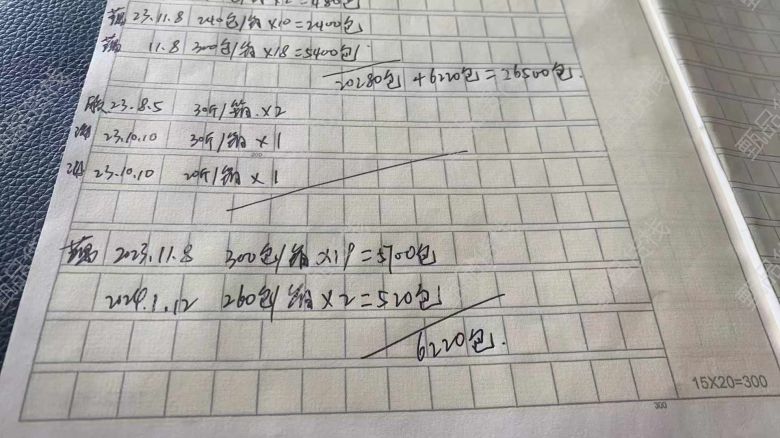 23.11.8 240包/箱×10=2400包
11.8 300包/箱×18=5400包
20280包+6220包=26500包.
23.8.5 30斤/箱×2
23.10.10 30斤/箱×1
23.10.10 20斤/箱×1
2023.11.8 300包/箱×19=5700包
2024.1.12 260包/箱×2=520包
6220包.
15X20=300
300